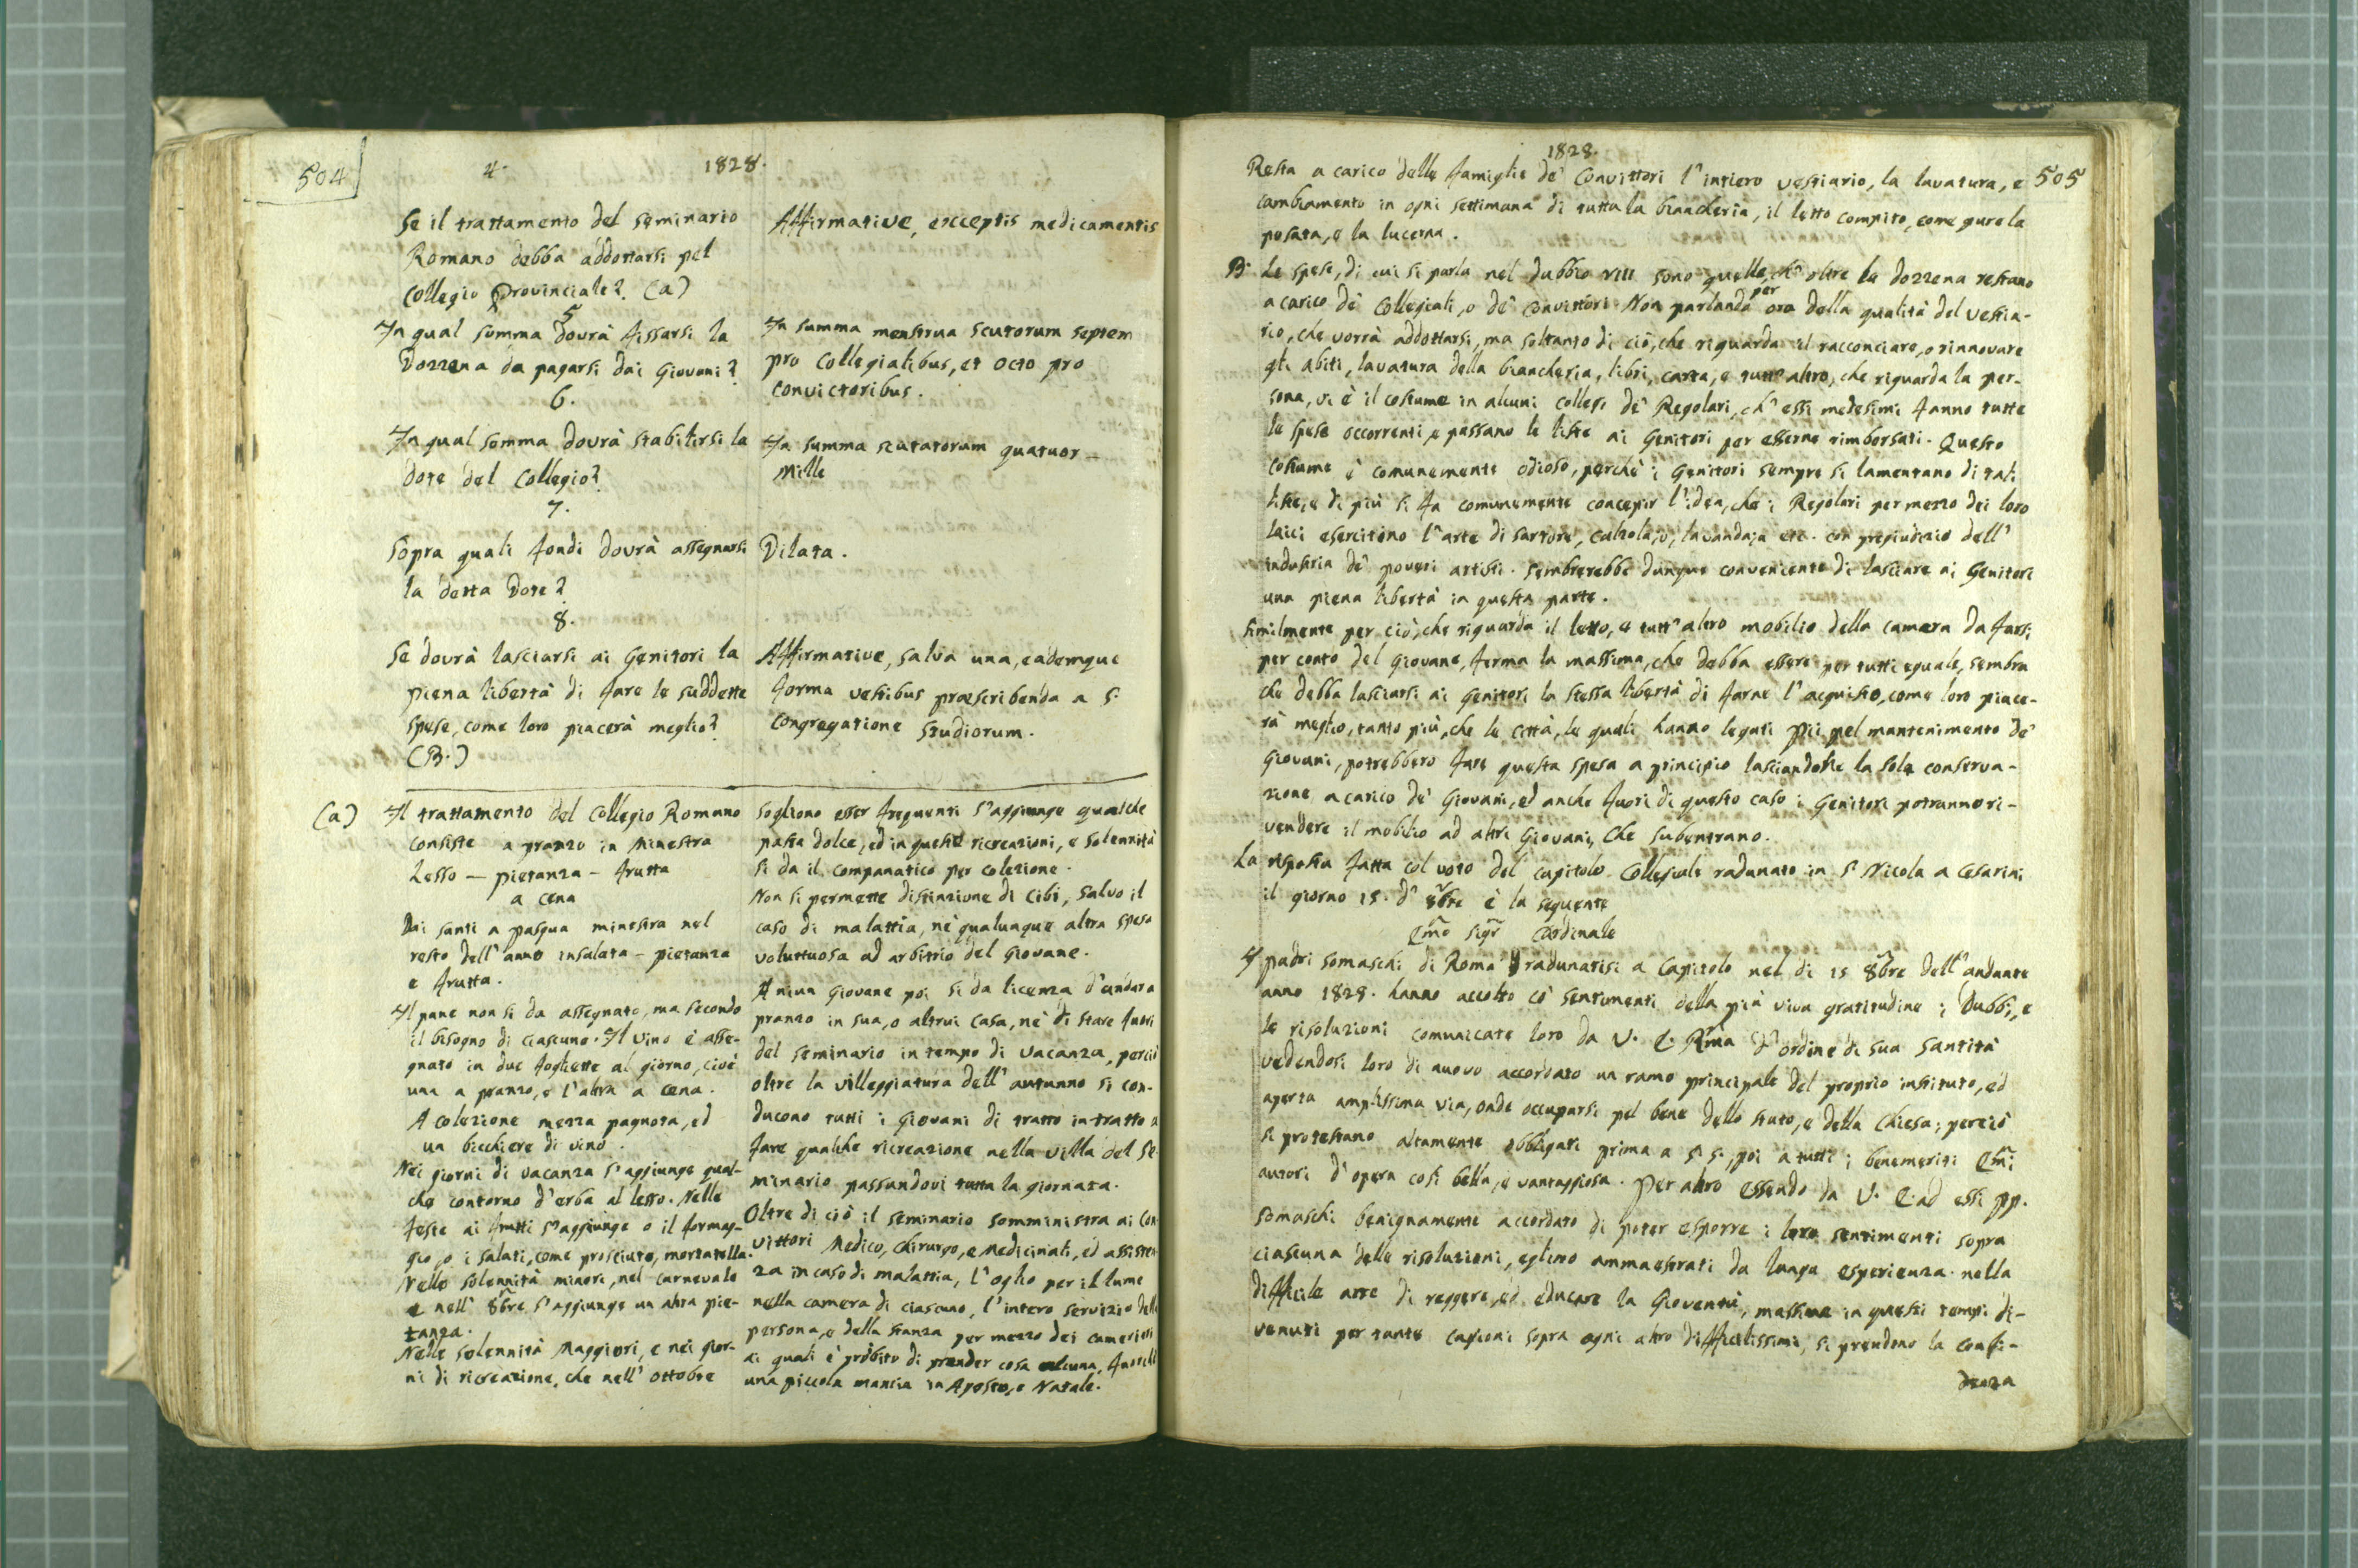 504
4. 1828.
Se il trattamento del seminario
Romano debba addottarsi pel
Collegio Provinciale? (a)
5
In qual somma dovrà fissarsi la
Dozzena da pagarsi dai Giovani?
6.
In qual somma dovrà stabilirsi la
dote del Collegio?
7.
Sopra quali fondi dovrà assegnarsi
la detta Dote?
8.
Se dovrà lasciarsi ai Genitori la
piena libertà di fare le suddette
spese, come loro piacerà meglio?
(B.)
Affirmative, exceptis medicamentis
In summa menstrua scutorum septem
pro Collegialibus, et octo pro
convictoribus.
In summa scutatorum quatuor –
Mille
Dilata.
Affirmative, salva una, eademque
forma vestibus præscribenda a S.
Congregatione Studiorum.
(a) Il trattamento del Collegio Romano
consiste a pranzo in Minestra
Lesso – pietanza – frutta
a cena
Dai santi a pasqua minestra nel
resto dell'anno insalata – pietanza
e frutta.
Il pane non si da assegnato, ma secondo
il bisogno di ciascuno. Il vino è asse-
gnato in due fogliette al giorno, cioè
una a pranzo, e l'altra a cena.
A colezione mezza pagnota, ed
un bicchiere di vino.
Nei giorni di vacanza s'aggiunge qual-
che contorno d'erba al lesso. Nelle
feste ai frutti s'aggiunge o il formag-
gio, o i salati, come prosciuto, mortatella.
Nelle solennità minori, nel carnevale
e nell' 8bre s'aggiunge un altra pie-
tanza.
Nelle solennità Maggiori, e nei gior-
ni di ricreazione, che nell' ottobre
sogliono esser frequenti s'aggiunge qualche
pasta dolce, ed in queste ricreazioni, e solennità
si da il companatico per colezione.
Non si permette distinzione di Cibi, salvo il
caso di malattia, nè qualunque altra spesa
voluttuosa ad arbitrio del Giovane.
A niun Giovane poi si da licenza d'andare a
pranzo in sua, o altrui Casa, nè di stare fuori
del seminario in tempo di vacanza, perciò
oltre la villeggiatura dell' autunno si con-
ducono tutti i Giovani di tratto in tratto a
fare qualche ricreazione nella villa del Se-
minario passandovi tutta la giornata.
Oltre di ciò il seminario somministra ai Con-
vittori Medico, Chirurgo, e Medicinali, ed assisten-
za in caso di malattia, l'oglio per il lume
nella camera di ciascuno, l'intero servizio della
persona, e della stanza per mezzo dei camerieri
ai quali è proibito di prender cosa alcuna, fuorchè
una piccola mancia in Agosto, e Natale.
1828.
505
Resta a carico delle famiglie de' Convittori l'intiero vestiario, la lavatura, e
cambiamento in ogni settimana di tutta la biancheria, il letto compito, come pure la
posata, e la lucerna.
B. Le spese, di cui si parla nel dubbio VIII sono quelle, ch' oltre la dozzena restano
a carico de' Collegiali, o de' convittori. Non parlando per ora della qualità del vestia-
rio, che vorrà addottarsi, ma soltanto di ciò, che riguarda il racconciare, o rinnovare
gli abiti, lavatura della biancheria, libri, carta, e tutt' altro, che riguarda la per-
sona, vi è il costume in alcuni collegi de' Regolari, ch' essi medesimi fanno tutte
le spese occorrenti, e passano le liste ai Genitori per esserne rimborsati. Questo
costume è comunemente odioso, perchè i Genitori sempre si lamentano di tali
liste, e di più si fa comunemente concepir l'idea, che i Regolari per mezzo dei loro
laici esercitino l'arte di sartore, calzolajo, lavandaja etc. con pregiudizio dell'
industria de' poveri artisti. Sembrerebbe dunque conveniente di lasciare ai Genitori
una piena libertà in questa parte.
Similmente per ciò, che riguarda il letto, e tutt' altro mobilio della camera da farsi
per conto del Giovane, ferma la massima, che debba essere per tutti eguale, sembra
che debba lasciarsi ai Genitori la stessa libertà di farne l'acquisto, come loro piace-
rà meglio, tanto più, che le città, le quali hanno legati Pii pel mantenimento de'
Giovani, potrebbero fare questa spesa a principio lasciandone la sola conserva-
zione a carico de' Giovani, ed anche fuori di questo caso i Genitori potranno ri-
vendere il mobilio ad altri Giovani, Che subentrano.
La risposta fatta col voto del capitolo Collegiale radunato in S. Nicola a Cesarini
il giorno 15. d' 8bre è la seguente
Emo Sigr Cardinale
I padri Somaschi di Roma radunatisi a Capitolo nel di 15 8bre dell'andante
anno 1828. hanno accolto co' sentimenti della più viva gratitudine i Dubbi, e
le risoluzioni comunicate loro da V. E. Rma d'ordine di sua Santità
vedendosi loro di nuovo accordato un ramo principale del proprio instituto, ed
aperta amplissima via, onde occuparsi pel bene dello stato, e della Chiesa; perciò
si protestano altamente obbligati prima a S. S., poi a tutti i benemeriti Emi
autori d'opera così bella, e vantaggiosa. Per altro essendo da V. E. ad essi PP.
Somaschi benignamente accordato di poter esporre i loro sentimenti sopra
ciascuna delle risoluzioni, eglino ammaestrati da lunga esperienza nella
difficile arte di reggere, ed educare la Gioventù, massime in questi tempi di-
venuti per tante cagioni sopra ogni altro difficilissimi, si prendono la confi-
denza